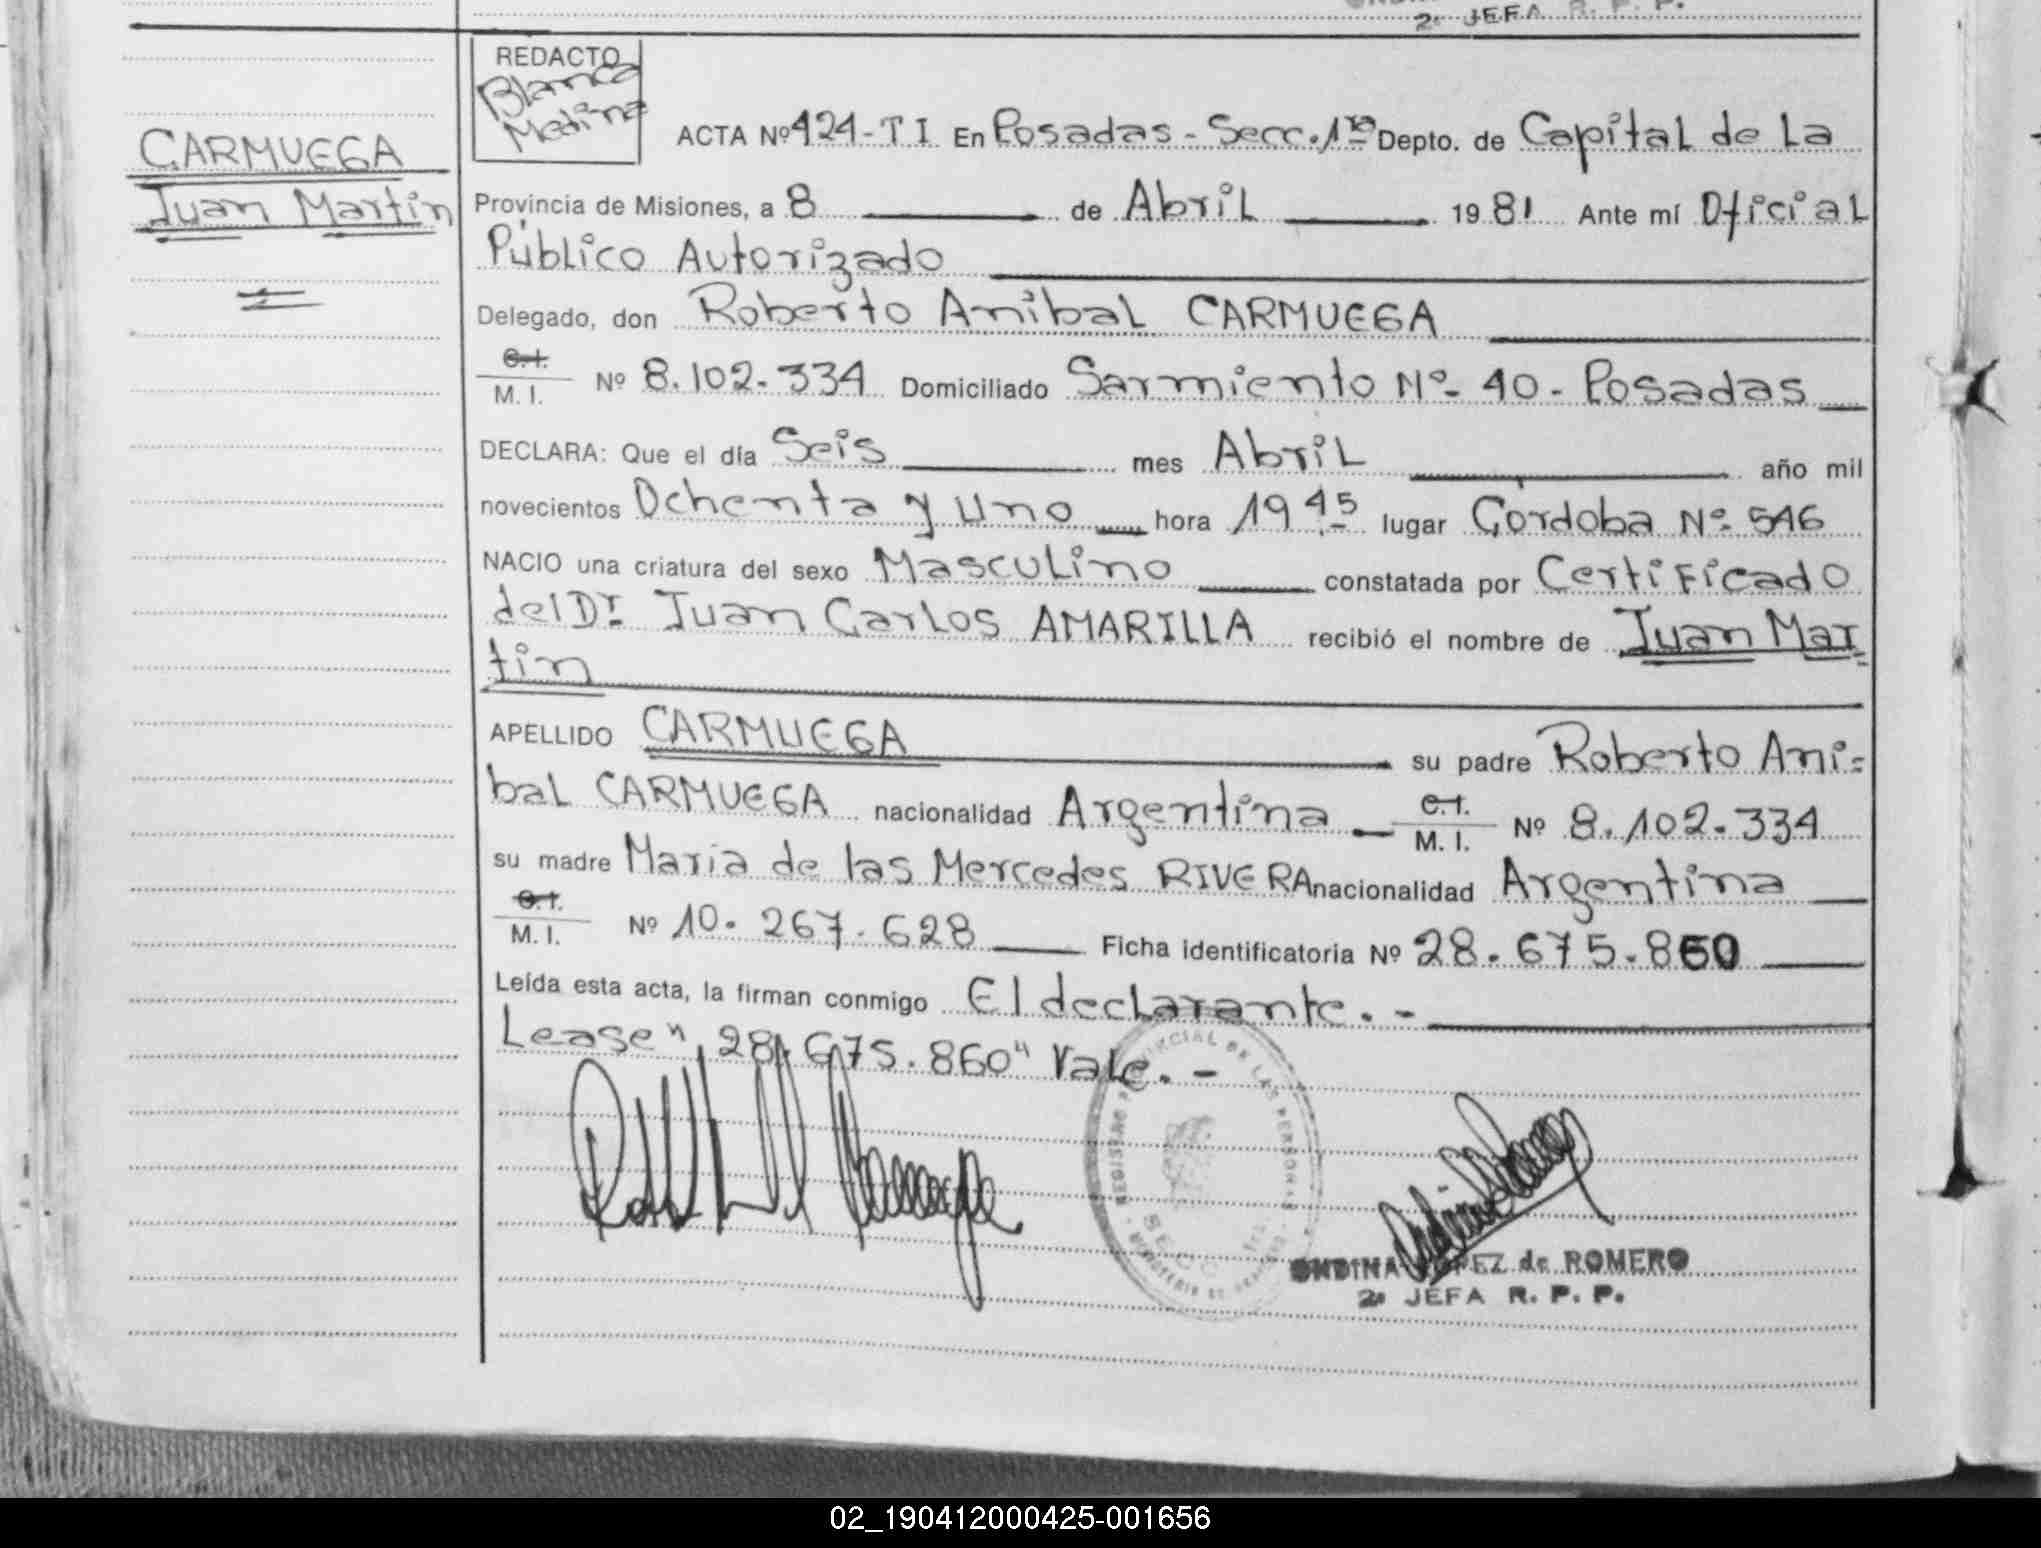 2º JEFA R. P. P.
REDACTO
Blanca
Medina
CARMUEGA
Juan Martin
ACTA Nº 424-T I En Posadas - Secc. 1ra Depto. de Capital de La
Provincia de Misiones, a 8 de Abril 1981 Ante mí Oficial
Público Autorizado
Delegado, don Roberto Anibal CARMUEGA
C. I.
M. I. Nº 8.102.334 Domiciliado Sarmiento Nº 40 - Posadas
DECLARA: Que el día Seis mes Abril año mil
novecientos Ochenta y Uno hora 19 45 lugar Córdoba Nº 546
NACIO una criatura del sexo Masculino constatada por Certificado
del Dr Juan Carlos AMARILLA recibió el nombre de Juan Mar
tin
APELLIDO CARMUEGA su padre Roberto Ani=
bal CARMUEGA nacionalidad Argentina C. I. M. I. Nº 8.102.334
su madre Maria de las Mercedes RIVERA nacionalidad Argentina
C. I.
M. I. Nº 10.267.628 Ficha identificatoria Nº 28.675.860
Leída esta acta, la firman conmigo El declarante. -
Lease " 28.675.860" Vale. -
REGISTRO PROVINCIAL DE LAS PERSONAS
ONDINA LOPEZ de ROMERO
2º JEFA R. P. P.
02_190412000425-001656